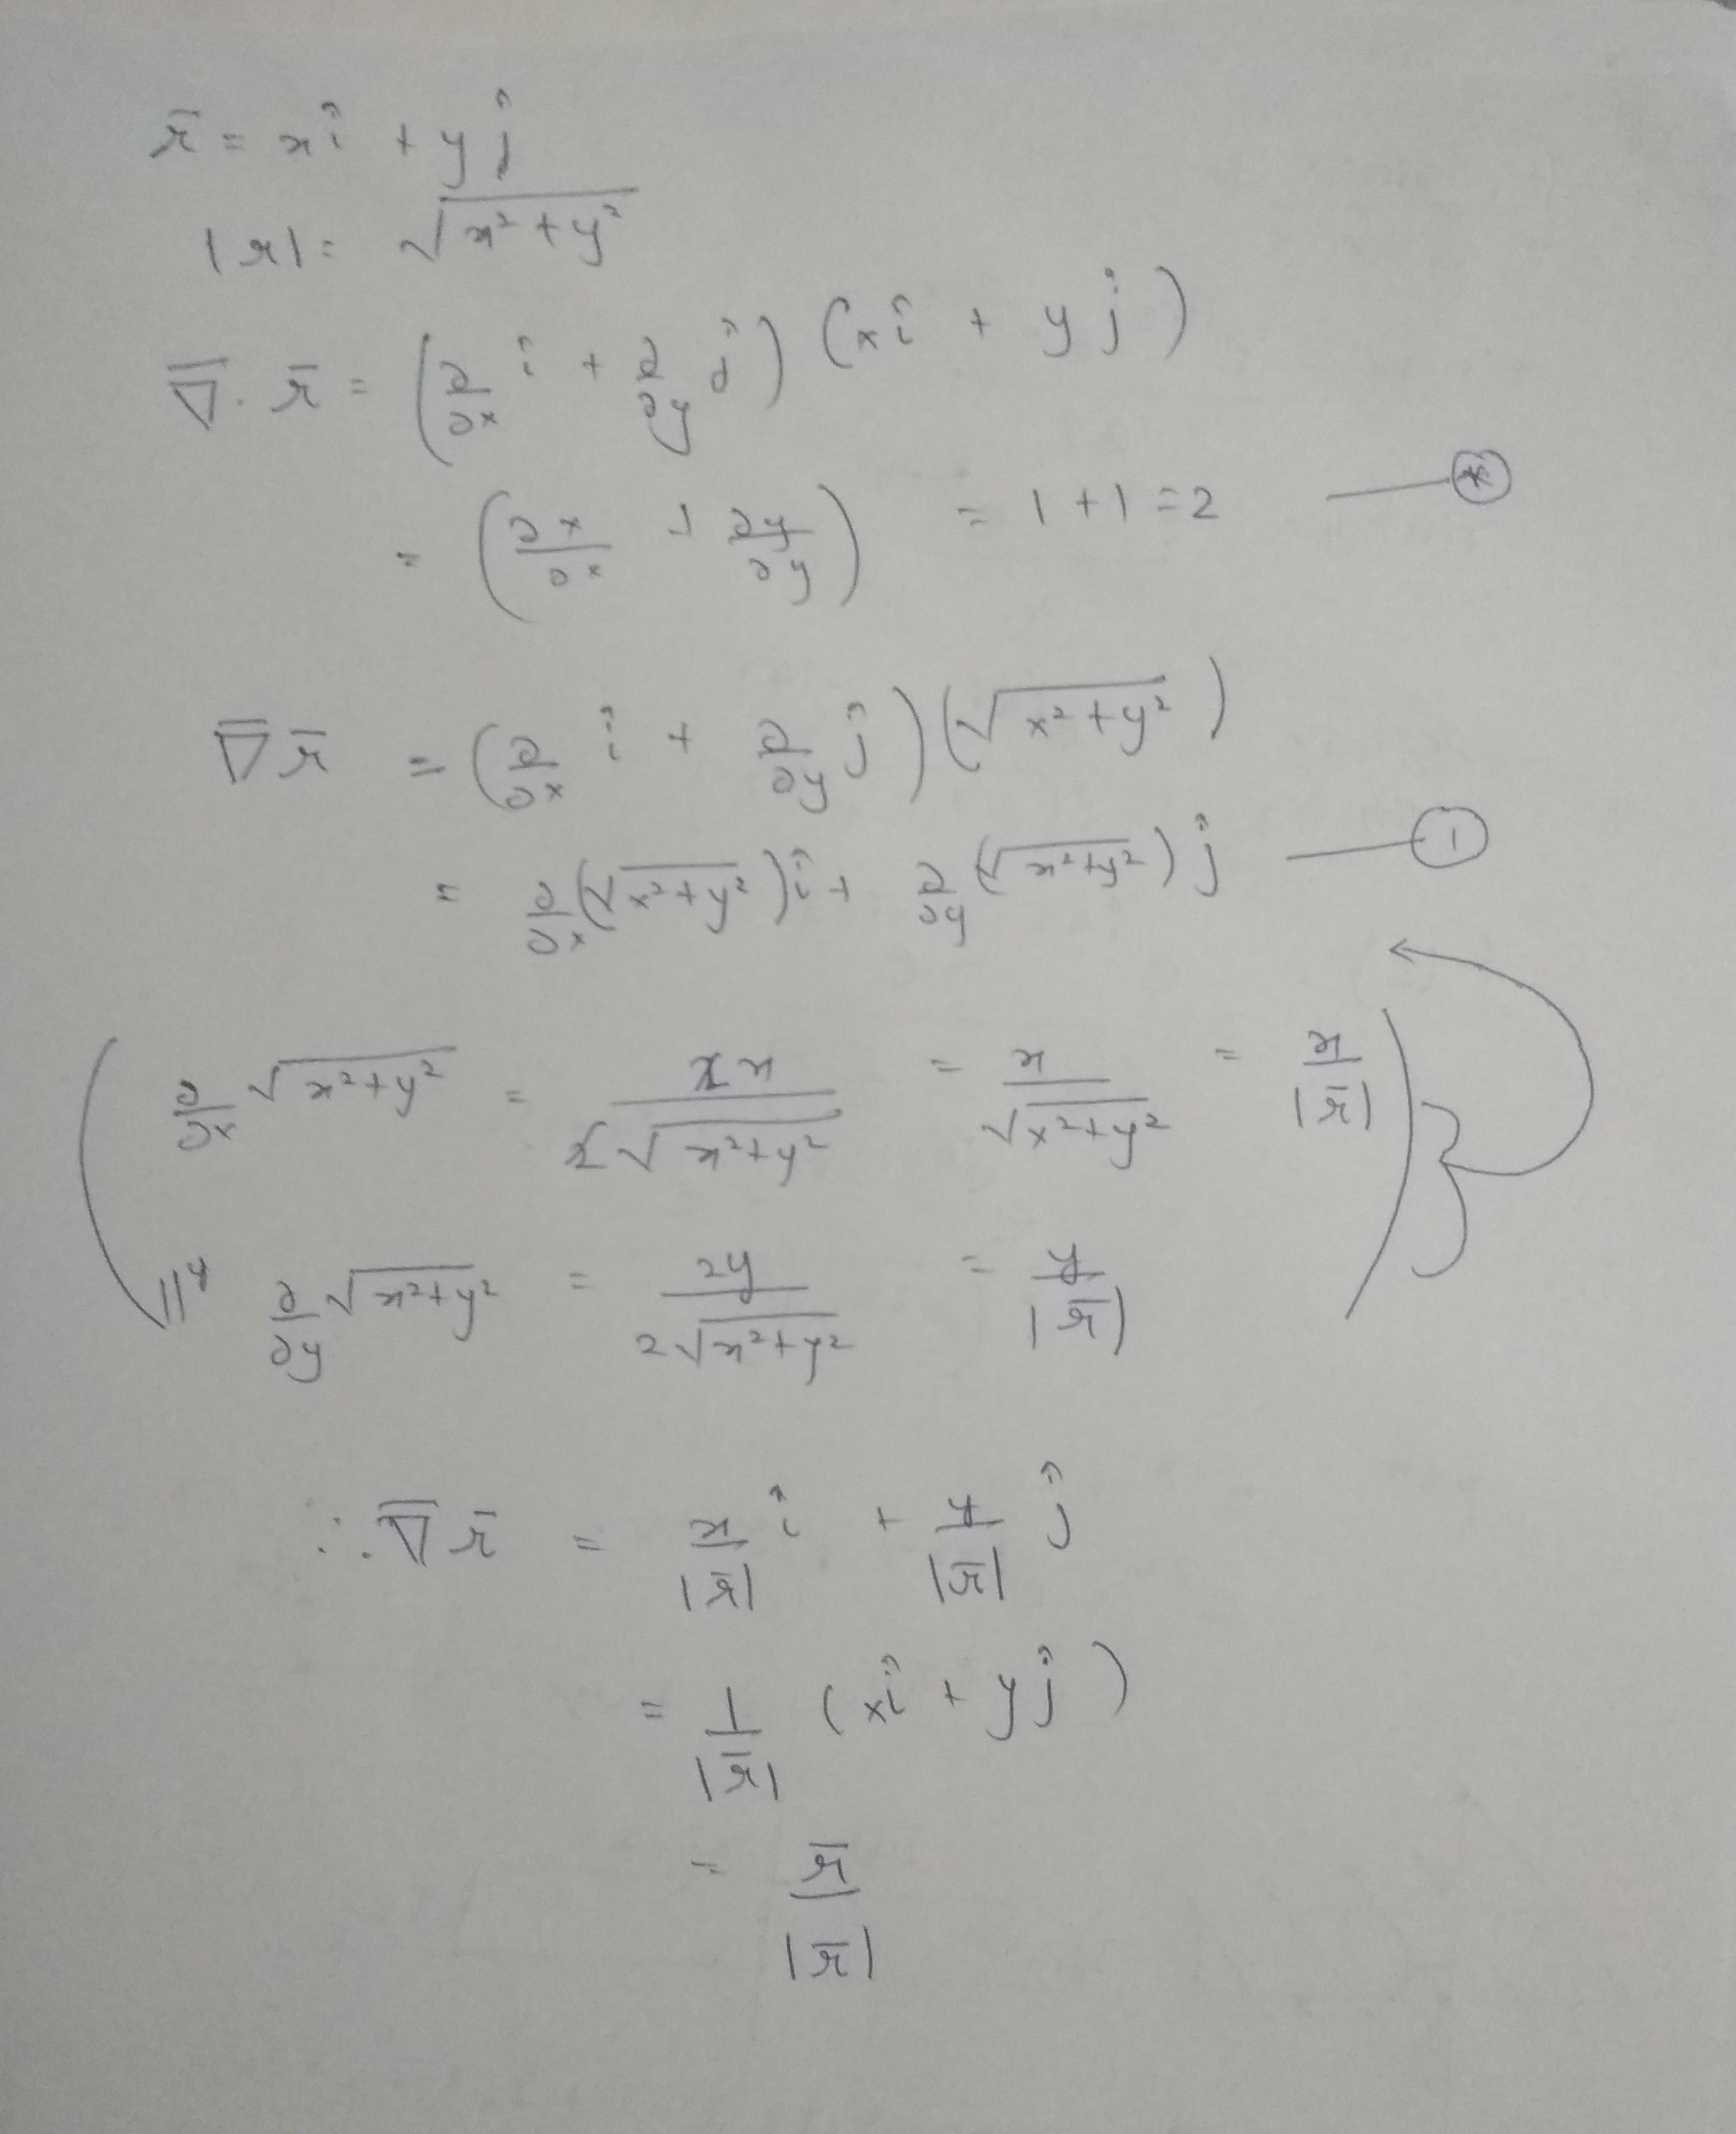 r̄ = x î + y ĵ
|r| = √(x² + y²)
∇̄ · r̄ = (∂/∂x î + ∂/∂y ĵ) (x î + y ĵ)
= (∂x/∂x + ∂y/∂y) = 1 + 1 = 2 — (*)
∇̄ r̄ = (∂/∂x î + ∂/∂y ĵ) (√(x² + y²))
= ∂/∂x (√(x² + y²)) î + ∂/∂y (√(x² + y²)) ĵ — (1)
( ∂/∂x √(x² + y²) = 2x / 2√(x² + y²) = x / √(x² + y²) = x / |r̄|
||ly ∂/∂y √(x² + y²) = 2y / 2√(x² + y²) = y / |r̄| ) }
∴ ∇̄ r̄ = x/|r̄| î + y/|r̄| ĵ
= 1/|r̄| (x î + y ĵ)
= r̄ / |r̄|